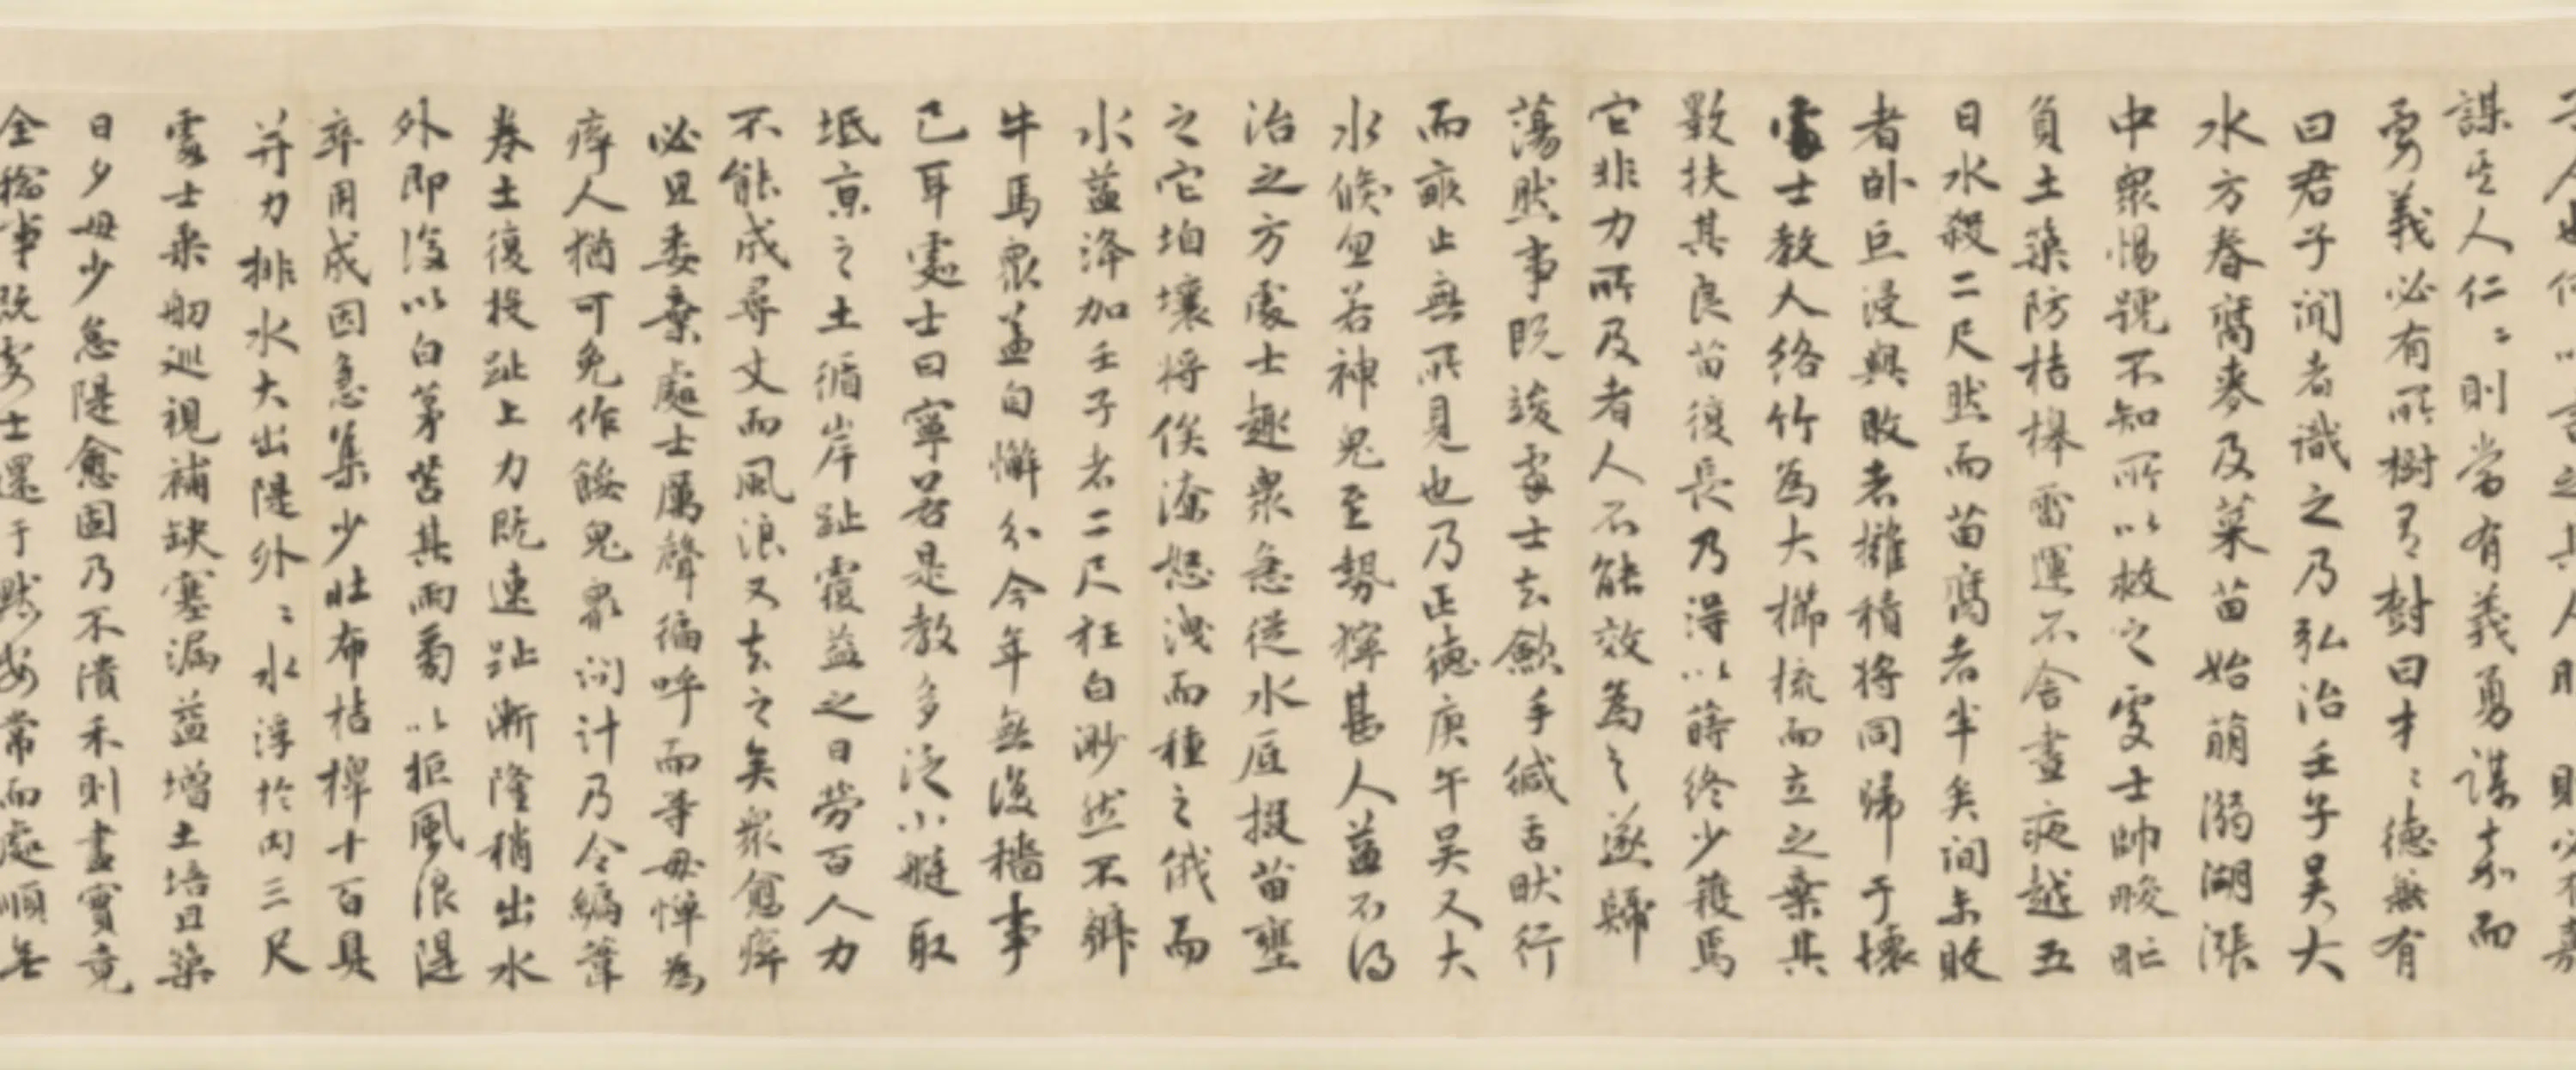 謀至人仁〻則當有義勇謀嘉而
勇義必有所樹乃對曰才〻德無有
曰君子聞者識之乃弘治壬子吴大
水方春腐麥及菜苗始萌溺湖漲
中眾惕號不知所以救之處士帥畯氓
負土築防桔槔畚運不舍晝夜越五
日水殺二尺然而苗腐者半矣間未敗
者卧巨浸與敗者擁積將同歸于壞
處士教人絡竹為大櫛梳而立之棄其
數扶其良苗復長乃得以蒔終少穫焉
它非力所及者人不能效為之遂歸
蕩然事既竣處士去歛手緘舌欿行
而亟止無所見也乃正德庚午吴又大
水倏忽若神鬼至勢獰甚人益不得
治之方處士趣眾急從水厓掇苗壅
之它垍壤將俟潦怒洩而種之俄而
水益洚加壬子者二尺狂白渺然不辨
牛馬眾益自懈分今年無復穡事
已耳處士曰寧若是教多泛小艇取
坻京之土循岸趾覆益之日勞百人力
不能成尋丈而風浪又去之矣眾愈瘁
必且委棄處士厲聲徧呼而等毋憚為
瘁人猶可免作餒鬼眾問計乃令編葦
卷土復投趾上力既速趾漸隆稍出水
外即復以白茅苫其兩旁以拒風浪隄
卒用成因急集少壯布桔槔十百具
并力排水大出隄外〻水浮於内三尺
處士乘舠巡視補缺塞漏益增土培且築
日夕毋少怠隄愈固乃不潰禾則盡實竟
全穡事既處士還于默安常而處順無